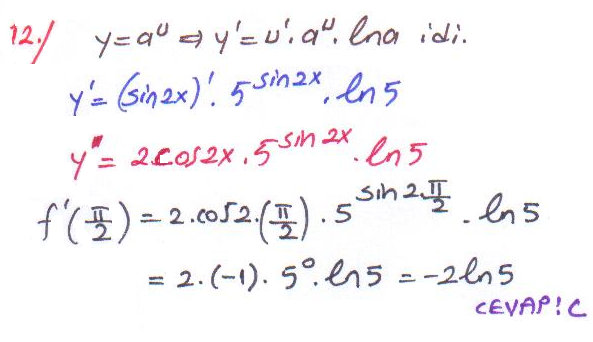 12./ y=a^u ⇒ y'=u'.a^u.lna idi.
y'=(sin2x)'.5^sin2x.ln5
y"=2cos2x.5^sin2x.ln5
f'(π/2)=2.cos2.(π/2).5^sin2.π/2.ln5
=2.(-1).5^0.ln5=-2ln5
CEVAP:C